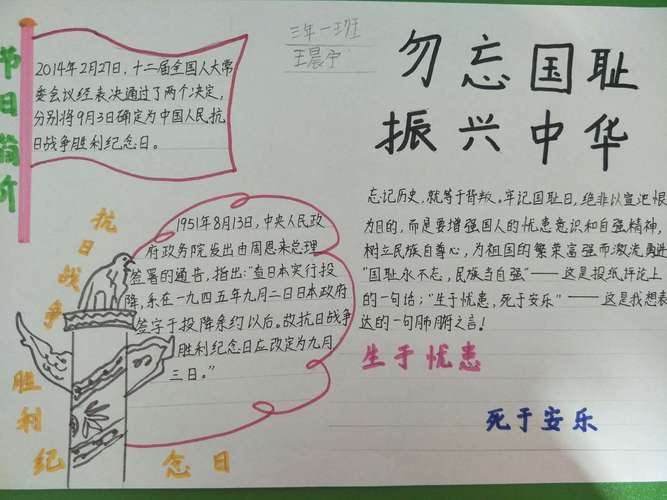 三年一班
王晨宁
节日简介
2014年2月27日，十二届全国人大常
委会议经表决通过了两个决定，
分别将9月3日确定为中国人民抗
日战争胜利纪念日。
勿忘国耻
振兴中华
抗日战争
胜利纪念日
1951年8月13日，中央人民政
府政务院发出由周恩来总理
签署的通告，指出："查日本实行投
降，系在一九四五年九月二日日本政府
签字于投降条约以后。故抗日战争
胜利纪念日应改定为九月
三日。"
忘记历史，就等于背叛。牢记国耻日，绝非以宣泄恨
为目的，而是要增强国人的忧患意识和自强精神，
树立民族自尊心，为祖国的繁荣富强而激流勇进
"国耻永不忘，民族当自强"——这是报纸评论上
的一句话；"生于忧患，死于安乐"——这是我想表
达的一句肺腑之言！
生于忧患
死于安乐